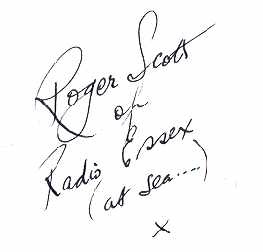 Roger Scott
of
Radio Essex
(at sea....)
x